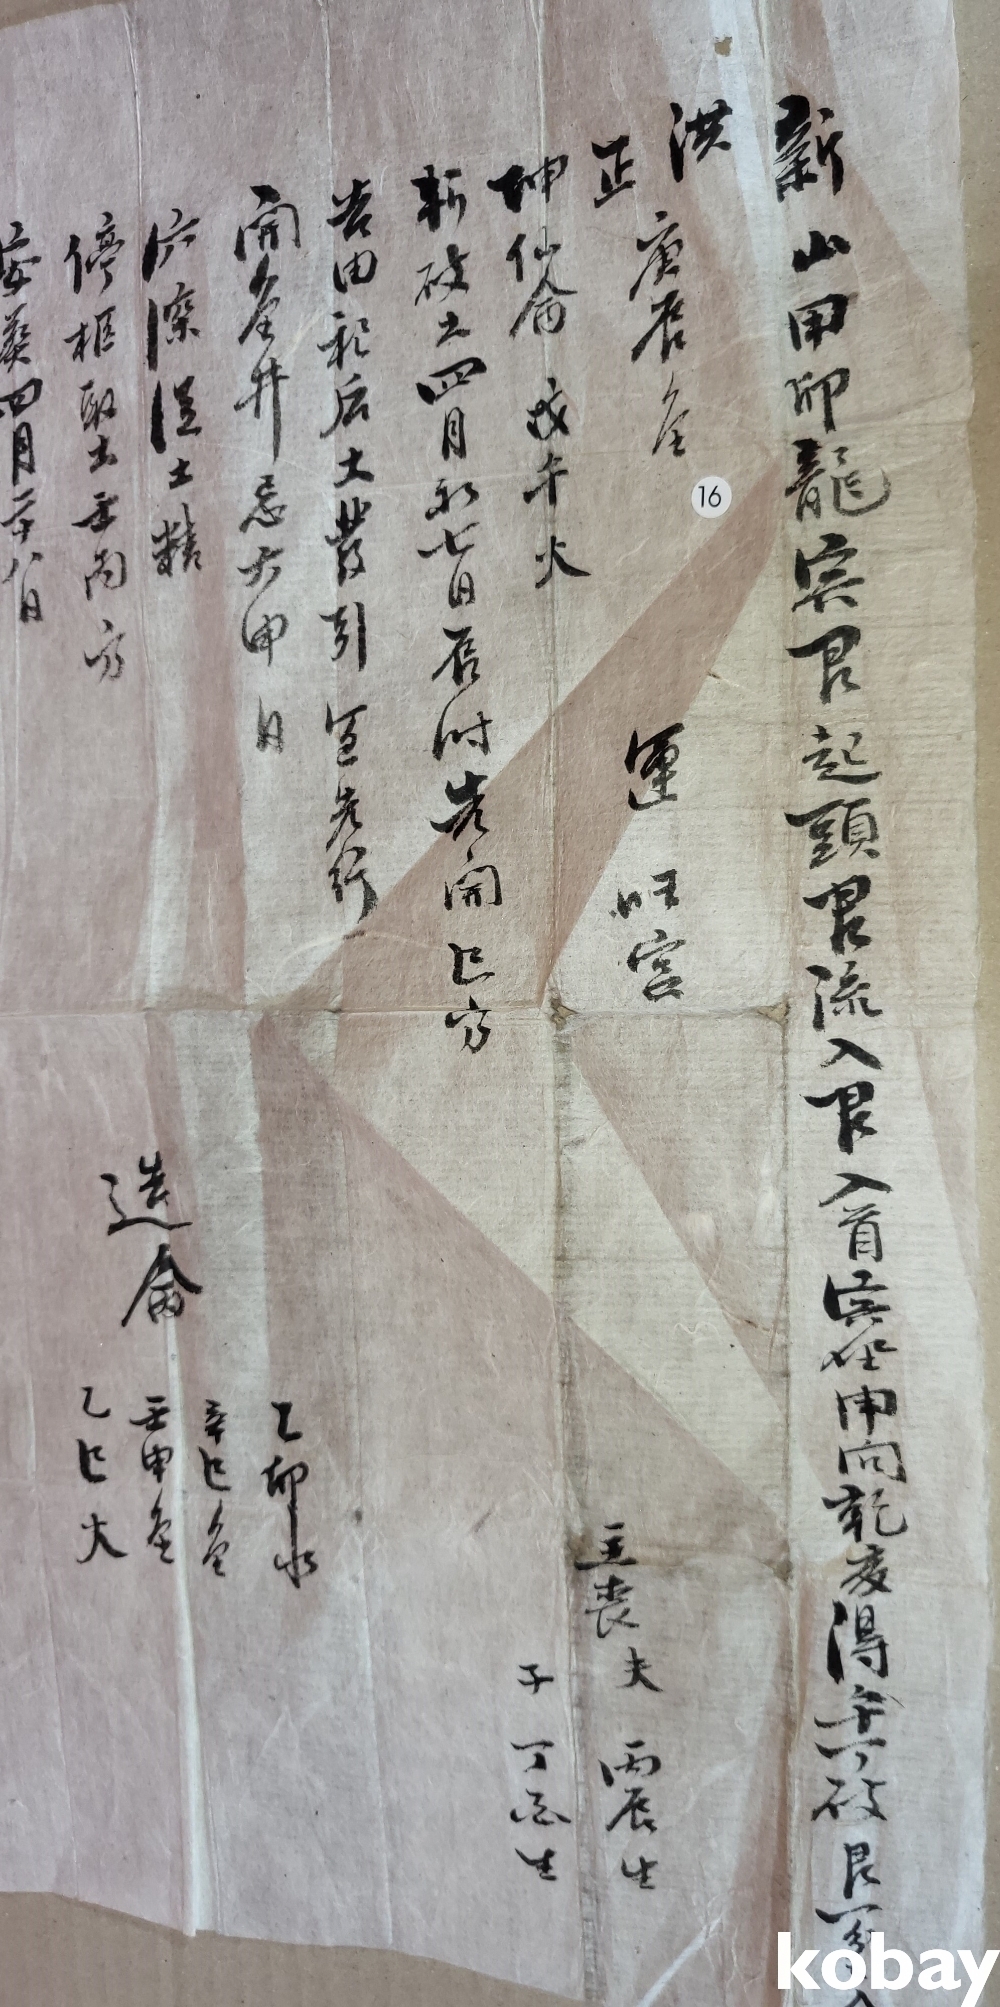 新山甲卯龍亥艮起頭艮流入艮入首亥坐申向乾亥得午丁破艮
洪
正
庚辰金 運 旺宮
坤仙命 戊午火
主喪夫 丙辰生
子 丁酉生
斬破土四月初七日辰時先開巳方
告由祀后土發引 宜先行
開金井忌六甲日
穴深淺土精
停柩取土壬丙方
安葬四月二十八日
造命
乙卯水
辛巳金
壬申金
乙巳火
16
kobay